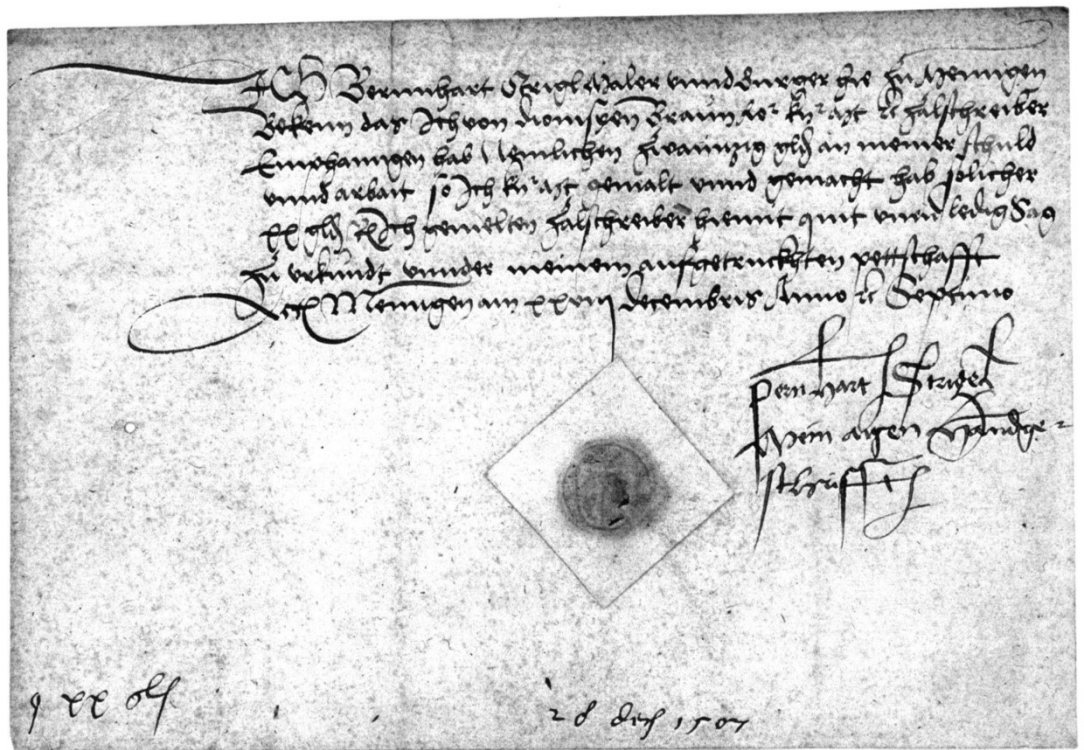 ICH Bernnhart Strigl Maler vnnd Burger hie zu Meningen
Bekenn das Ich von Dionisyen Braun Ro. kn. Mt. rc zalschreiber
Emphanngen hab Nemlichen zwainnzig gld an meiner schuld
vnnd arbait so Ich kn. Mt. gemalt vnnd gemacht hab solicher
xx gld Ich gemelten zalschreiber hiemit quit vnnd ledig Sag
zu vrkundt vnnder meinem aufgetruckhten pettschafft
Actum Menngen am xxviij decembris Anno rc Septimo
Pernhart Strigel
Mein aigen Handge-
schrifft
xx gld
28 dec 1507